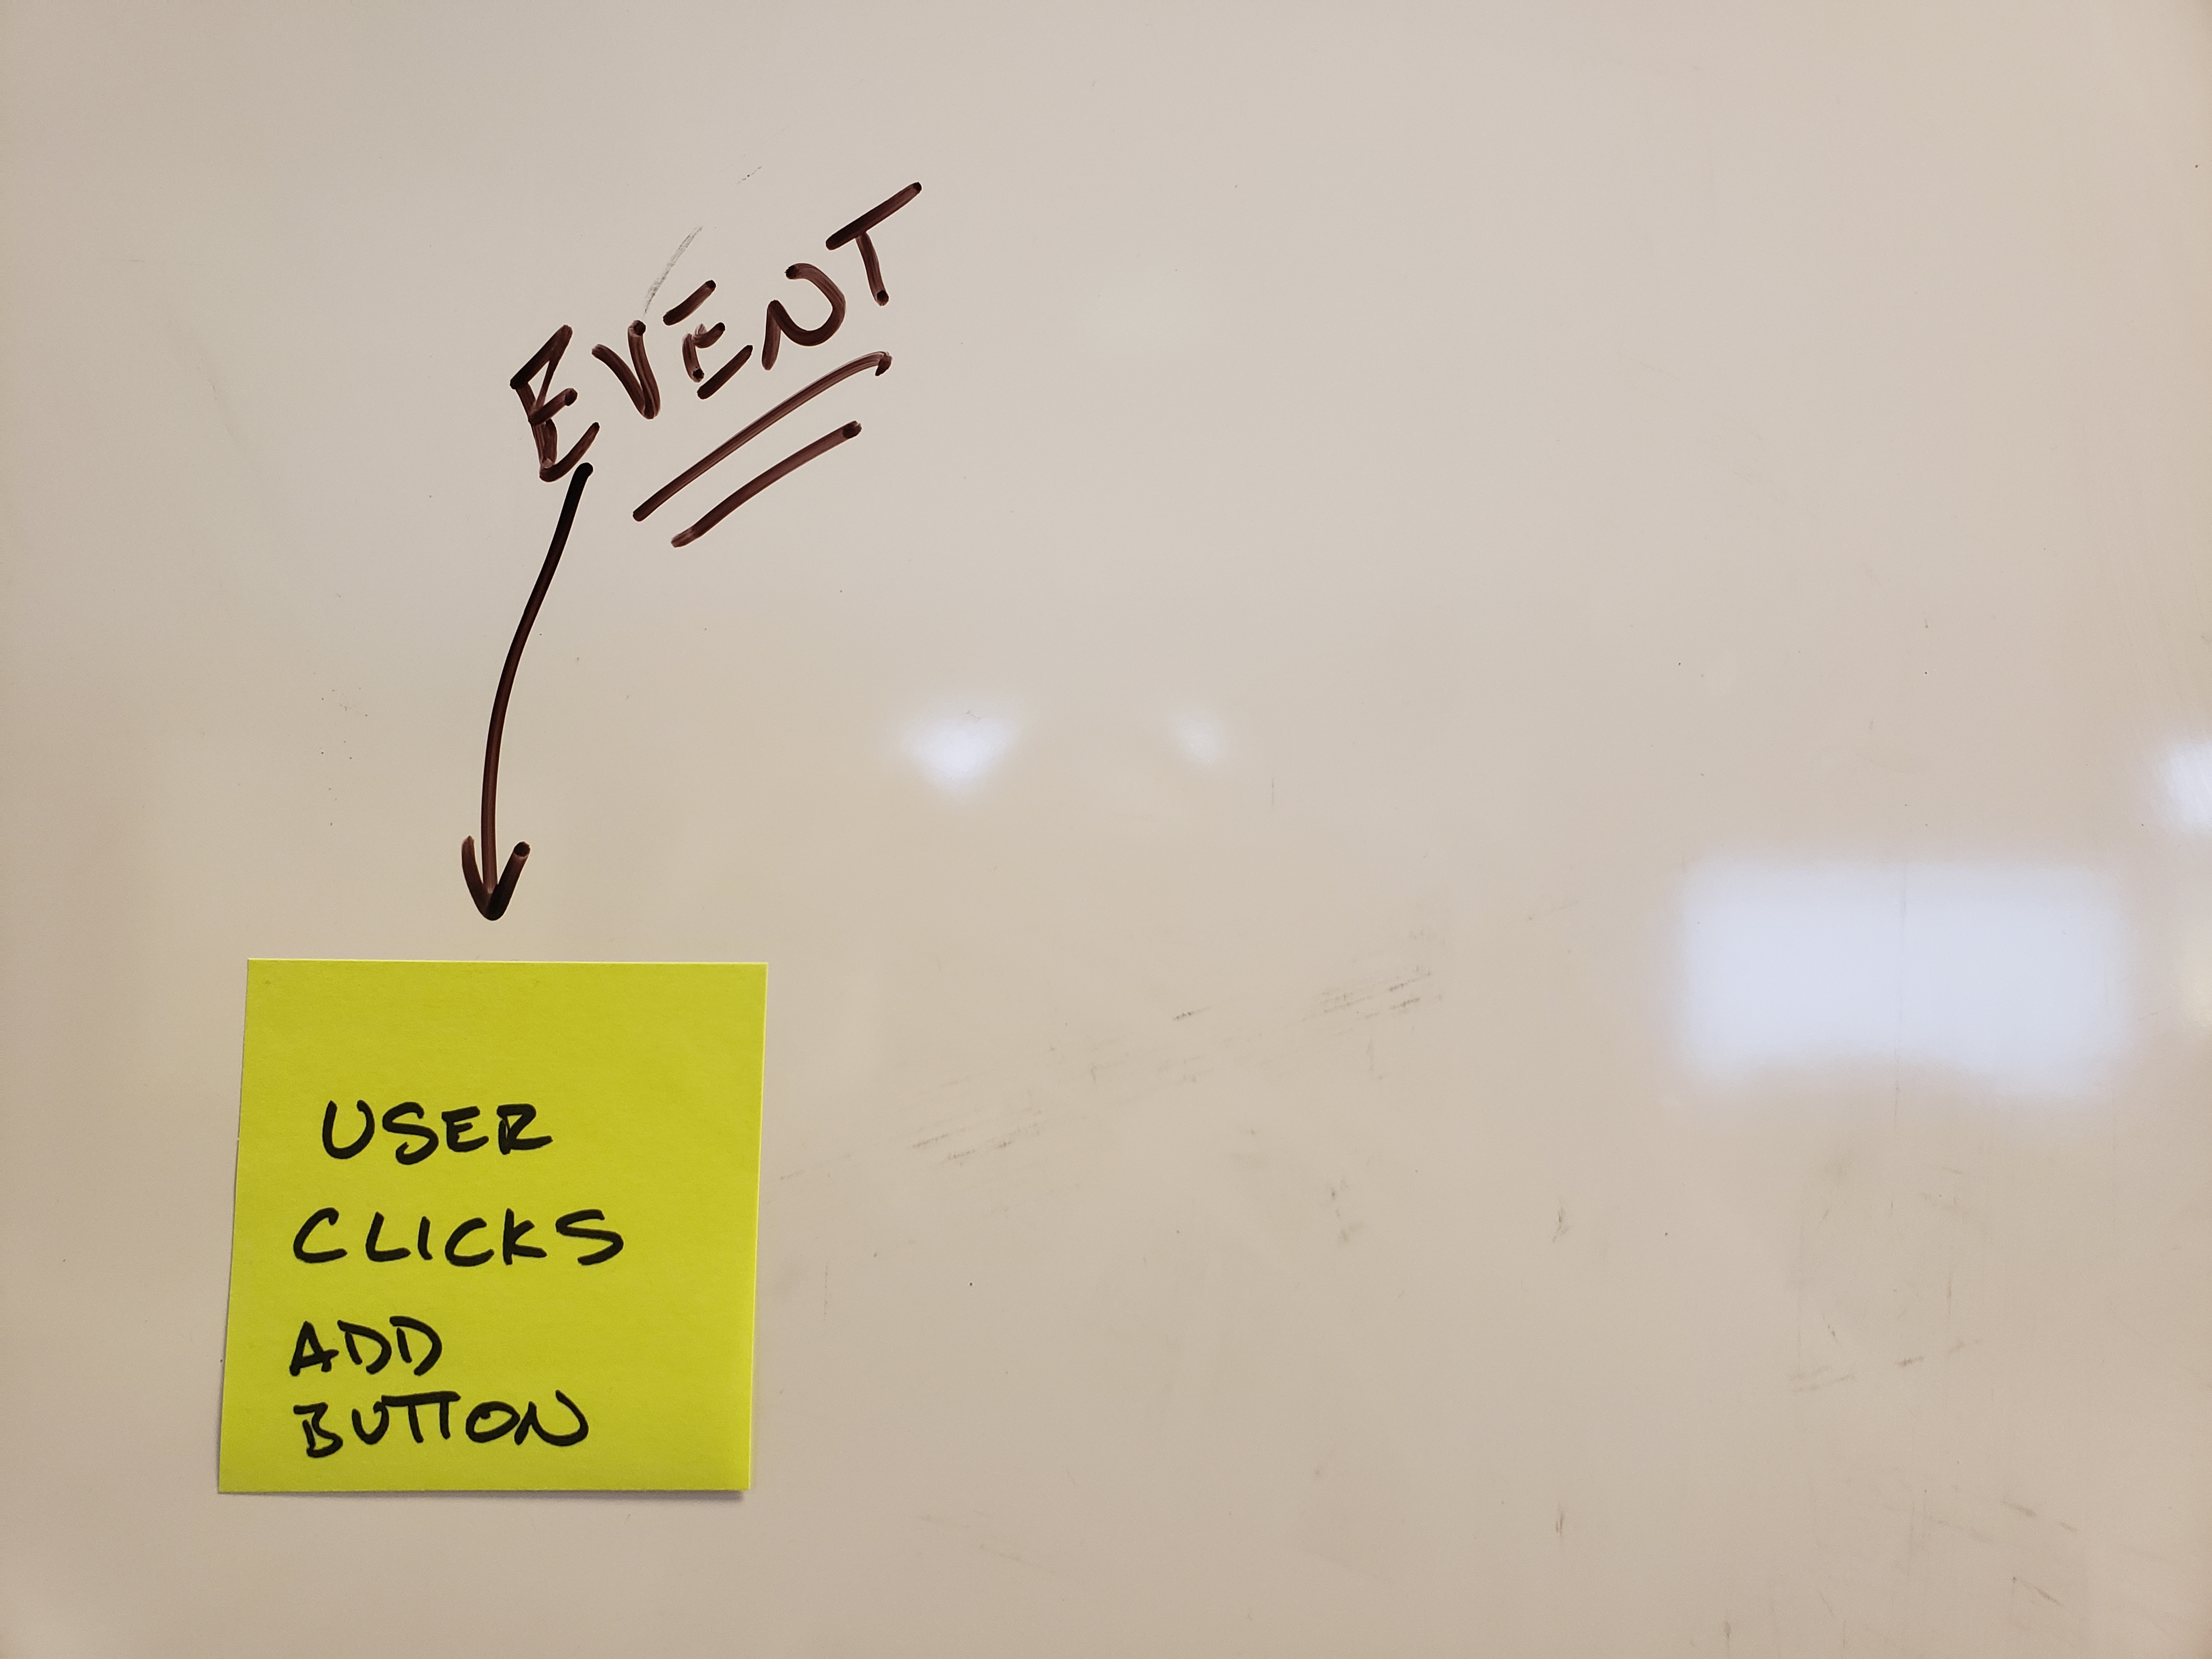 EVENT
USER
CLICKS
ADD
BUTTON